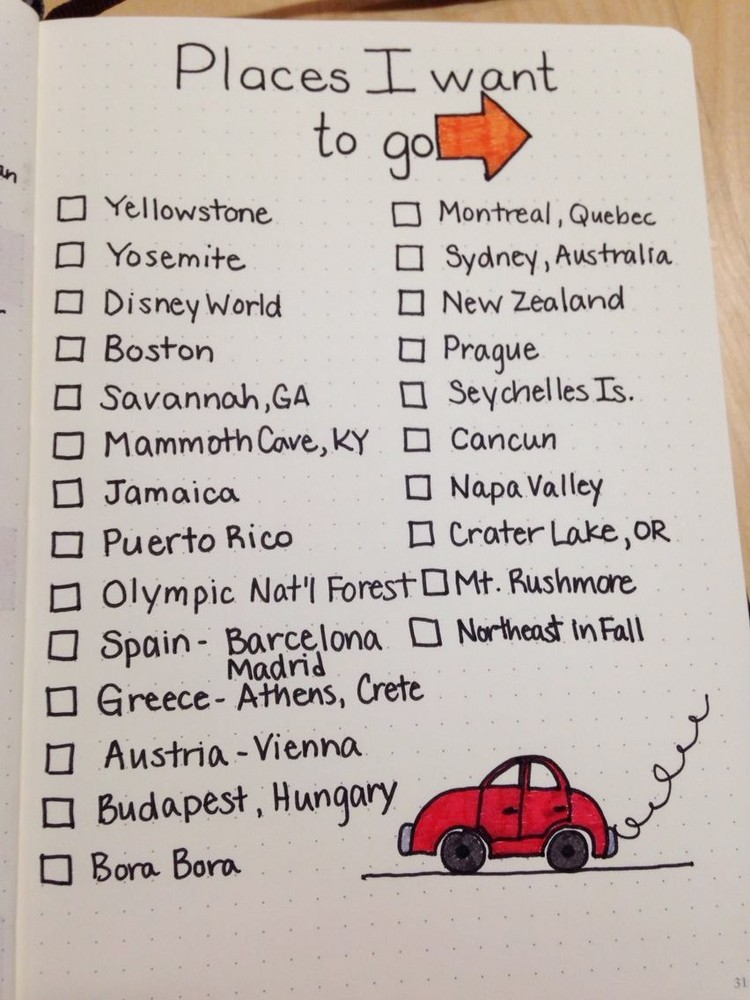 Places I want
to go
Yellowstone
Yosemite
Disney World
Boston
Savannah, GA
Mammoth Cave, KY
Jamaica
Puerto Rico
Olympic Nat'l Forest
Spain - Barcelona
Madrid
Greece - Athens, Crete
Austria - Vienna
Budapest, Hungary
Bora Bora
Montreal, Quebec
Sydney, Australia
New Zealand
Prague
Seychelles Is.
Cancun
Napa Valley
Crater Lake, OR
Mt. Rushmore
Northeast in Fall
31